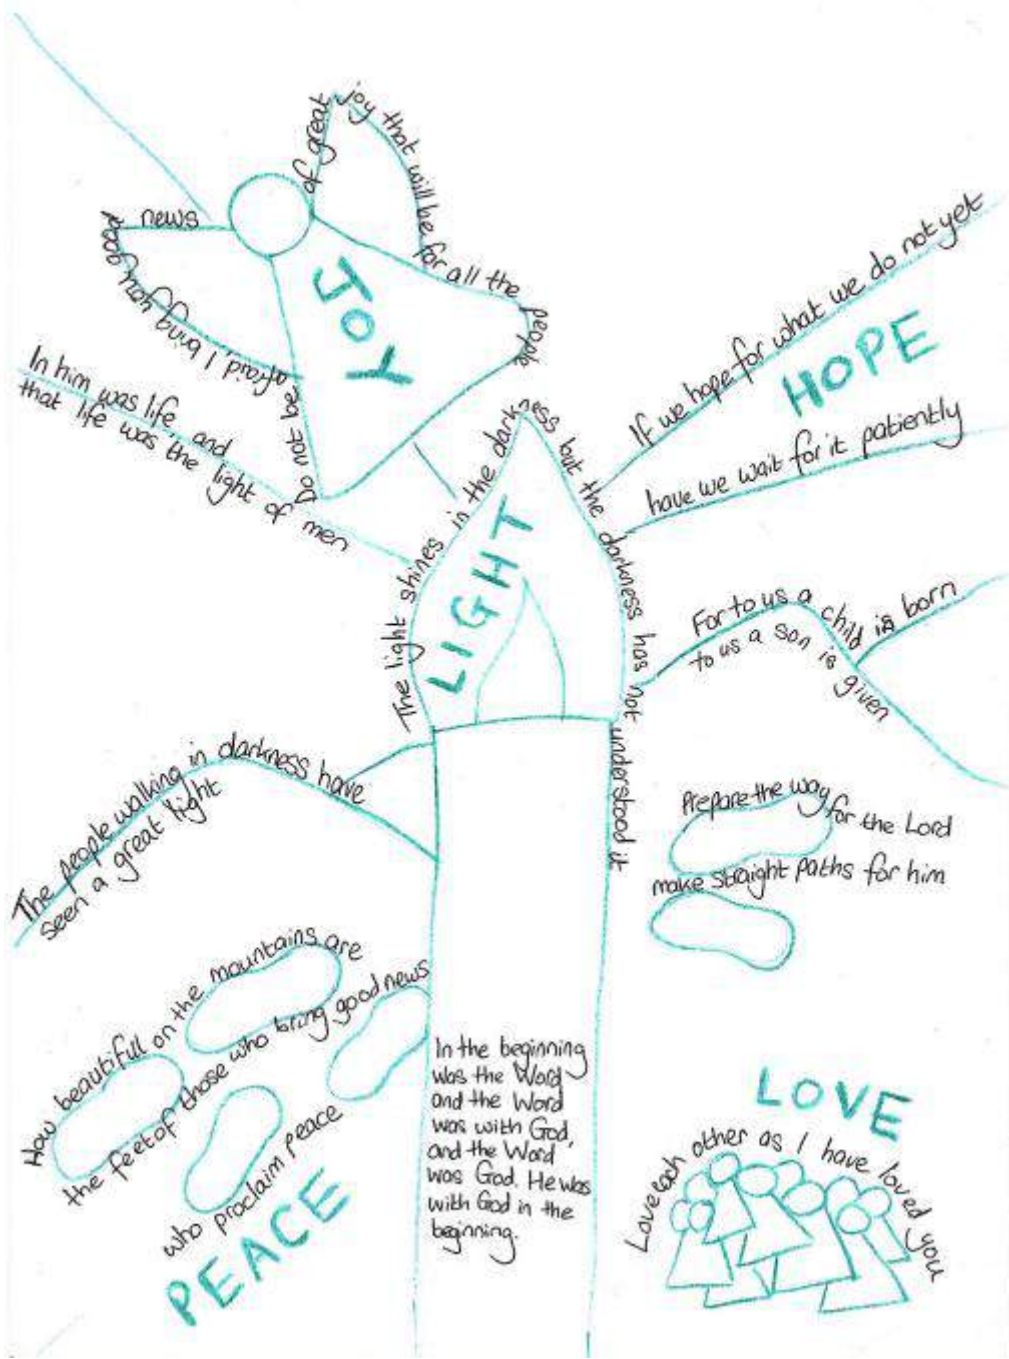 Do not be afraid, I bring you good
news
of great
joy that will be for all the people
JOY
In him was life and
that life was the light of men
If we hope for what we do not yet
HOPE
have we wait for it patiently
The light shines in the darkness but the darkness has not understood it
LIGHT
For to us a child is born
to us a son is given
The people walking in darkness have
seen a great light
Prepare the way for the Lord
make straight paths for him
How beautiful on the mountains are
the feet of those who bring good news
who proclaim peace
PEACE
In the beginning
was the Word
and the Word
was with God,
and the Word
was God. He was
with God in the
beginning.
LOVE
Love each other as I have loved you